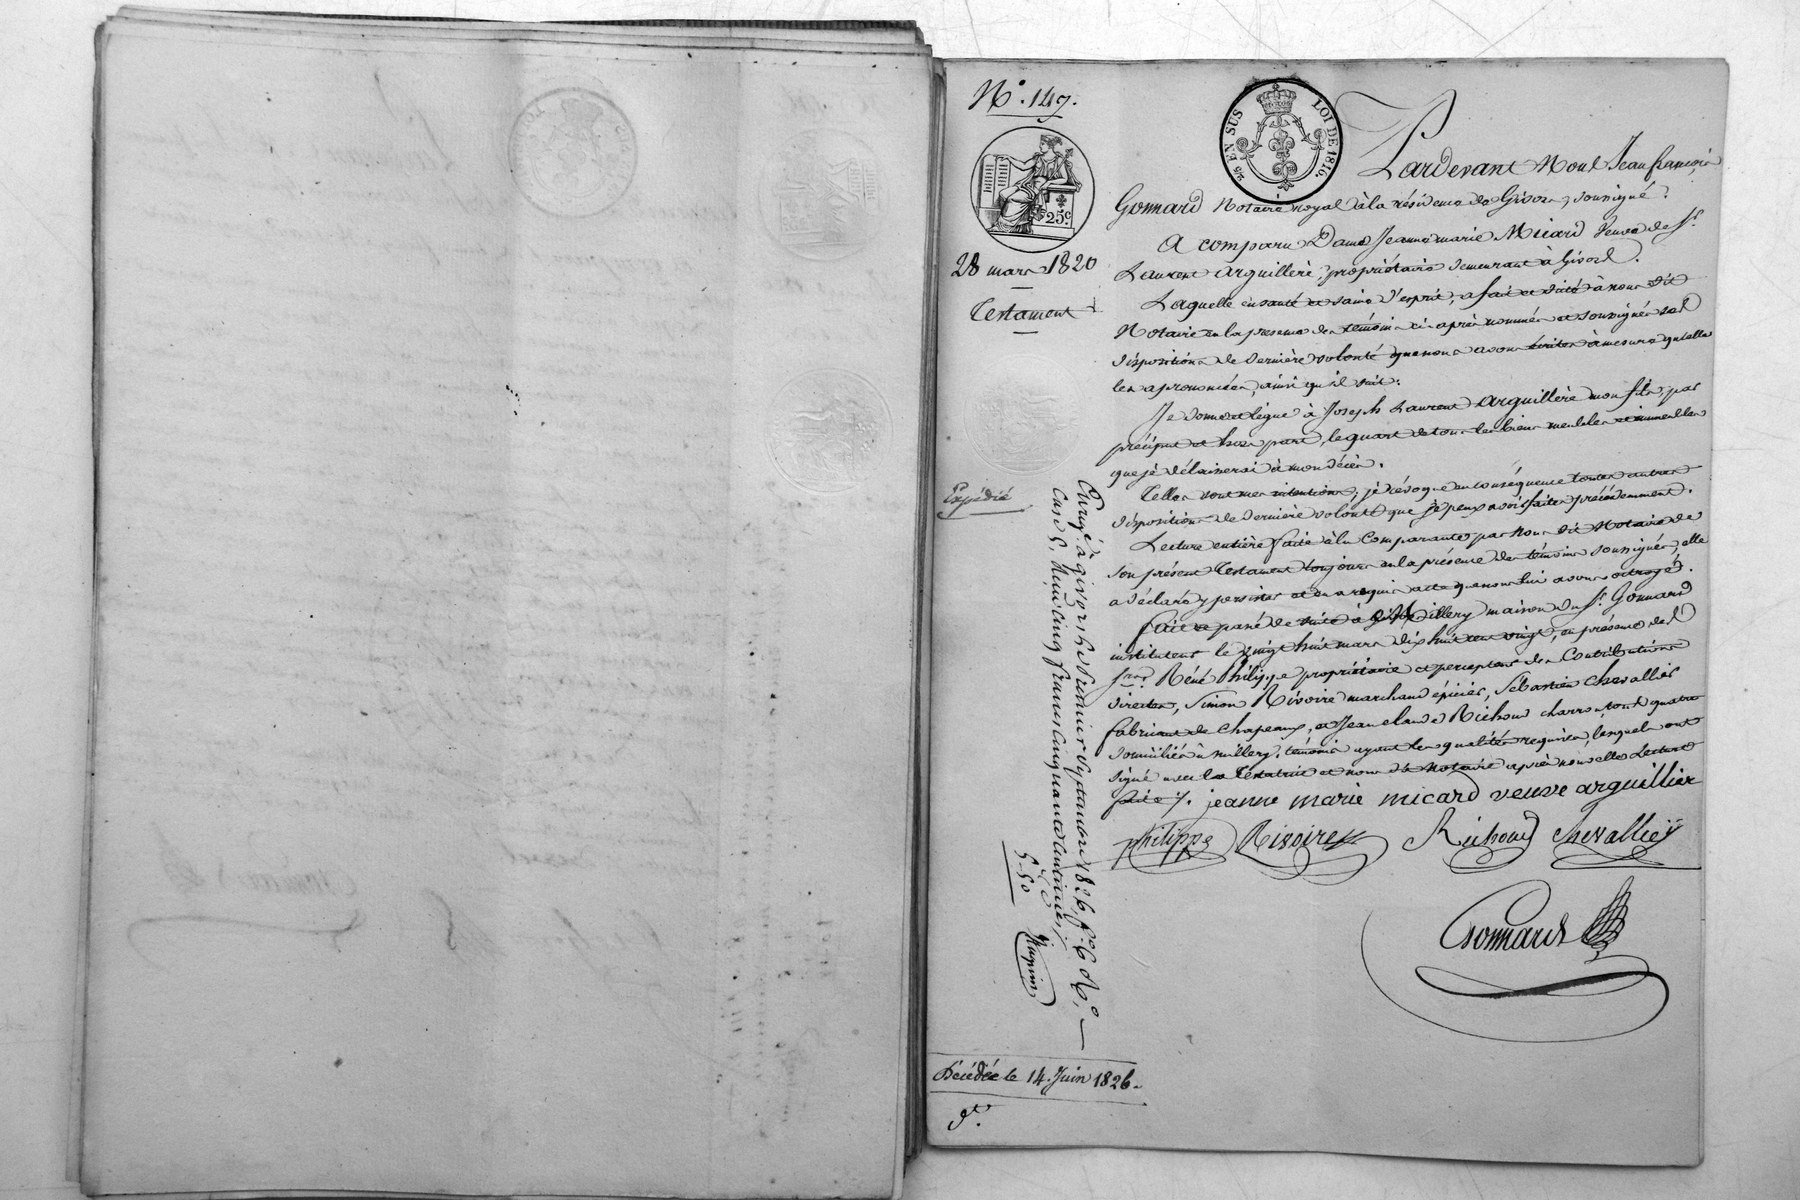 N.° 147.
EN SUS
LOI DE 1816.
25 c.
28 mars 1820
Testament
Expédié
Pardevant Nous Jean françois
Gonnard Notaire royal à la résidence de Givors, soussigné.
A comparu Dame Jeanne marie Micard Veuve de S.r
Laurent arguillère, propriétaire demeurant à Givors.
Laquelle en santé et saine d'esprit, a fait et dicté à nous dit
Notaire en la presence des témoins ci après nommés et soussignés ses
dispositions de derniere volonté que nous avons écrites à mesure qu'elle
les a prononcées, ainsi qu'il suit:
Je donne et lègue à Joseph Laurent arguillère mon fils, par
préciput et hors part, le quart de tous les biens meubles et immeubles
que je délaisserai à mon décès.
Telles sont mes intentions; je révoque en conséquence toutes autres
dispositions de dernière volonté que je peux avoir faites précédemment.
Lecture entière faite à la Comparante par Nous dit Notaire de
son présent Testament toujours en la présence des témoins soussignés, elle
a déclaré y persister et en a requis acte que nous lui avons octroyé.
fait et passé de suite à Millery maison du S.r Gonnard
instituteur le vingt huit mars dix huit cent vingt, en présence de
René Philippe propriétaire et percepteur des Contributions
directes, Simon Rivoire marchand épicier, Sébastien Chevallier
fabricant de Chapeaux, et Jean claude Richoud charron tous quatre
domiciliés à millery, témoins ayant les qualités requises, lesquels ont
signé avec la Testatrice et nous dit Notaire après nouvelle Lecture
faite /. jeanne marie micard veuve arguillier
philippe Rivoire Richoud chevallier
Gonnard
Enregé à givors, le premier septembre 1826, f.o 6 R.o
case 5. Reçu cinq francs cinquante centimes
5-50
Décédée le 14 Juin 1826.